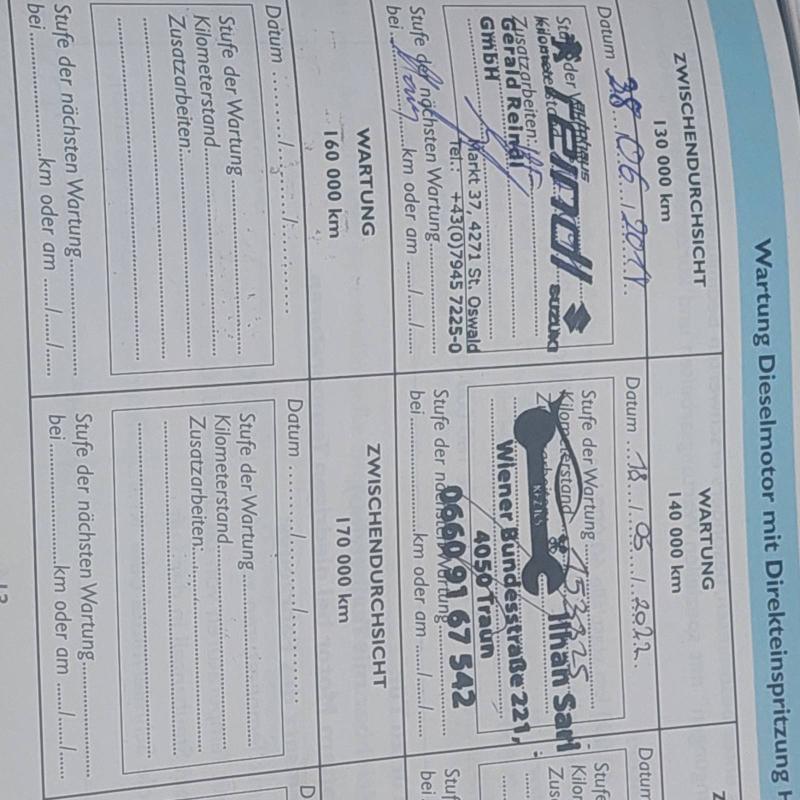 Wartung Dieselmotor mit Direkteinspritzung H
ZWISCHENDURCHSICHT
130 000 km
Datum 28. 06. / 2019
Stufe der Wartung
Kilometerstand
Zusatzarbeiten:
Autohaus
reindl
SUZUKI
Gerald Reindl
GmbH
Markt 37, 4271 St. Oswald
Tel.: +43(0)7945 7225-0
Stufe der nächsten Wartung
bei km oder am ...../...../.....
WARTUNG
140 000 km
Datum 18 / 05 / 2022
Stufe der Wartung
Kilometerstand 153325
Ilhan Sari
Wiener Bundesstraße 221,
4050 Traun
0660 91 67 542
Stufe der nächsten Wartung
bei km oder am ...../...../.....
Datum
Stufe
Kilor
Zus
Stuf
bei
WARTUNG
160 000 km
Datum ......../......../........
Stufe der Wartung
Kilometerstand
Zusatzarbeiten:
Stufe der nächsten Wartung
bei km oder am ...../...../.....
ZWISCHENDURCHSICHT
170 000 km
Datum ......../......../........
Stufe der Wartung
Kilometerstand
Zusatzarbeiten:
Stufe der nächsten Wartung
bei km oder am ...../...../.....
D